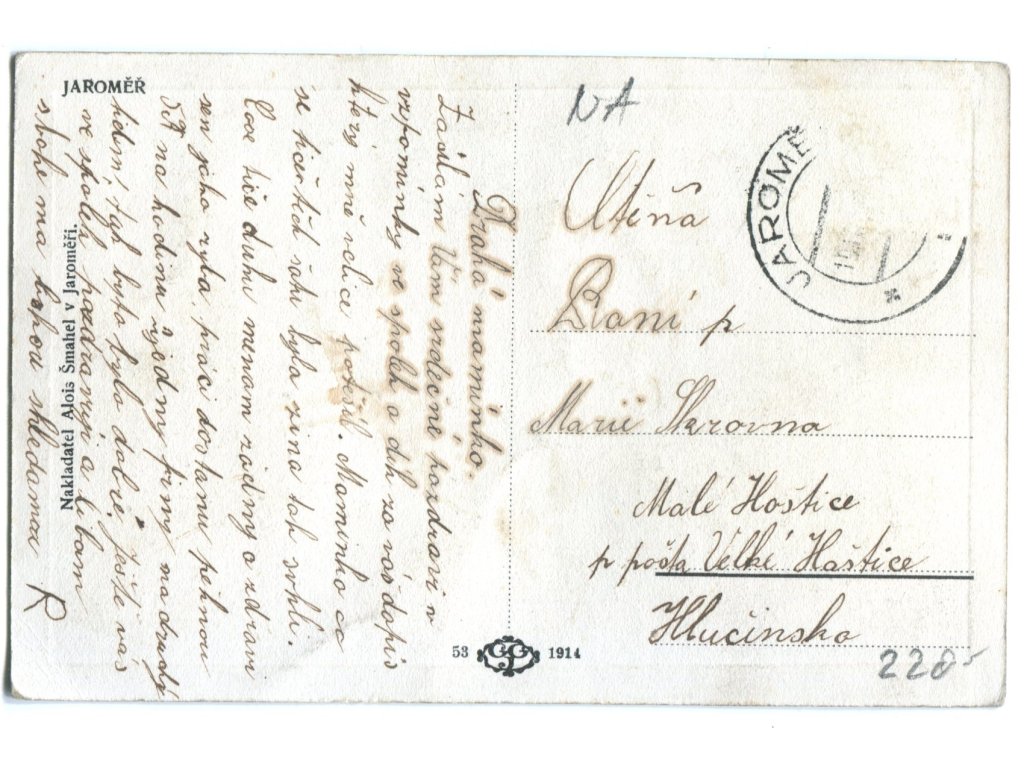 JAROMĚŘ
Nakladatel Alois Šmahel v Jaroměři.
Drahá maminko.
Zasílám Vám srdečné pozdravi v
vzpomínky ve spolek a dík za vás dopis
který mně velice potěšil. Maminko co
se tičeštěch šatu byla zima tak
co se tiče duhu menam zadny a zdravi
sem jaho ryba práci dostanu peknou
na hodinu vjedny firmy na druhý
byla bylo dobře, ještě vás
ve spolek pozdravuji a líbam
s bohem a brzkou shledanou R
NA
JAROMĚ
Ctěná
Paní p
Marie Skrovna
Malé Hoštice
p pošta Velké Haštice
Hlučínsko
53 1914
220-